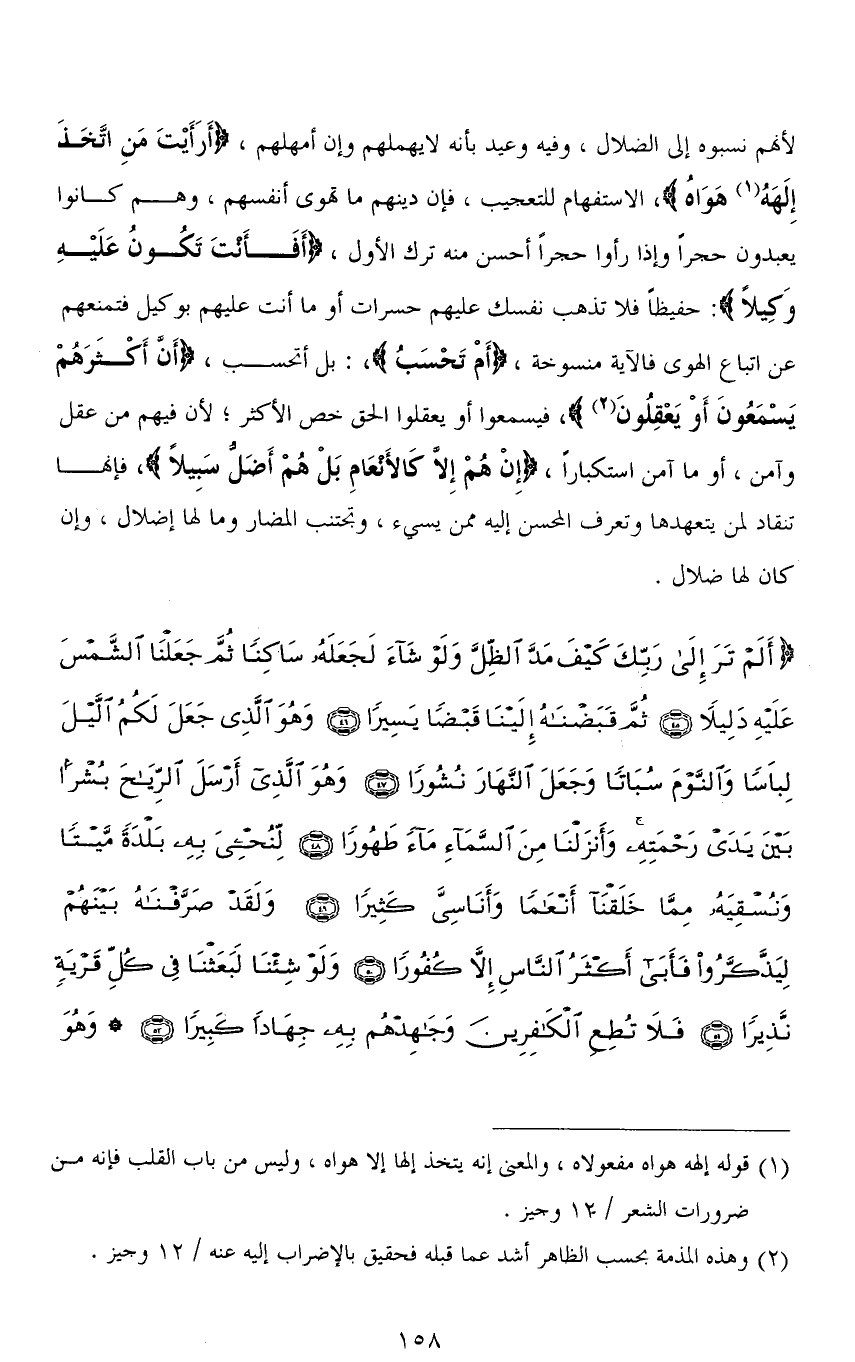 لأنهم نسبوه إلى الضلال ، وفيه وعيد بأنه لايهملهم وإن أمهلهم ، ﴿أَرَأَيْتَ مَنِ اتَّخَذَ
إِلَهَهُ(١) هَوَاهُ﴾، الاستفهام للتعجيب ، فإن دينهم ما تهوى أنفسهم ، وهـم كـانوا
يعبدون حجراً وإذا رأوا حجراً أحسن منه ترك الأول ، ﴿أَفَـأَنْتَ تَكُـونُ عَلَيْـهِ
وَكِيلاً﴾: حفيظاً فلا تذهب نفسك عليهم حسرات أو ما أنت عليهم بوكيل فتمنعهم
عن اتباع الهوى فالآية منسوخة ، ﴿أَمْ تَحْسَبُ﴾، : بل أتحسـب ، ﴿أَنَّ أَكْـثَرَهُمْ
يَسْمَعُونَ أَوْ يَعْقِلُونَ(٢)﴾، فيسمعوا أو يعقلوا الحق خص الأكثر ؛ لأن فيهم من عقل
وآمن ، أو ما آمن استكباراً ، ﴿إِنْ هُمْ إِلاَّ كَالأَنْعَامِ بَلْ هُمْ أَضَلُّ سَبِيلاً﴾، فإنهـا
تنقاد لمن يتعهدها وتعرف المحسن إليه ممن يسيء ، وتجتنب المضار وما لها إضلال ، وإن
كان لها ضلال .
﴿أَلَمْ تَرَ إِلَىٰ رَبِّكَ كَيْفَ مَدَّ ٱلظِّلَّ وَلَوْ شَآءَ لَجَعَلَهُۥ سَاكِنًا ثُمَّ جَعَلْنَا ٱلشَّمْسَ
عَلَيْهِ دَلِيلًا ۝٤٥ ثُمَّ قَبَضْنَـٰهُ إِلَيْنَا قَبْضًا يَسِيرًا ۝٤٦ وَهُوَ ٱلَّذِى جَعَلَ لَكُمُ ٱلَّيْلَ
لِبَاسًا وَٱلنَّوْمَ سُبَاتًا وَجَعَلَ ٱلنَّهَارَ نُشُورًا ۝٤٧ وَهُوَ ٱلَّذِىٓ أَرْسَلَ ٱلرِّيَـٰحَ بُشْرًۢا
بَيْنَ يَدَىْ رَحْمَتِهِۦ ۚ وَأَنزَلْنَا مِنَ ٱلسَّمَآءِ مَآءً طَهُورًا ۝٤٨ لِّنُحْـِۧىَ بِهِۦ بَلْدَةً مَّيْتًا
وَنُسْقِيَهُۥ مِمَّا خَلَقْنَآ أَنْعَـٰمًا وَأَنَاسِىَّ كَثِيرًا ۝٤٩ وَلَقَدْ صَرَّفْنَـٰهُ بَيْنَهُمْ
لِيَذَّكَّرُوا۟ فَأَبَىٰٓ أَكْثَرُ ٱلنَّاسِ إِلَّا كُفُورًا ۝٥٠ وَلَوْ شِئْنَا لَبَعَثْنَا فِى كُلِّ قَرْيَةٍ
نَّذِيرًا ۝٥١ فَلَا تُطِعِ ٱلْكَـٰفِرِينَ وَجَـٰهِدْهُم بِهِۦ جِهَادًا كَبِيرًا ۝٥٢ ۞ وَهُوَ
(١) قوله إلهه هواه مفعولاه ، والمعنى إنه يتخذ إلها إلا هواه ، وليس من باب القلب فإنه مـن
ضرورات الشعر / ١٢ وجيز .
(٢) وهذه المذمة بحسب الظاهر أشد عما قبله فحقيق بالإضراب إليه عنه / ١٢ وجيز .
١٥٨